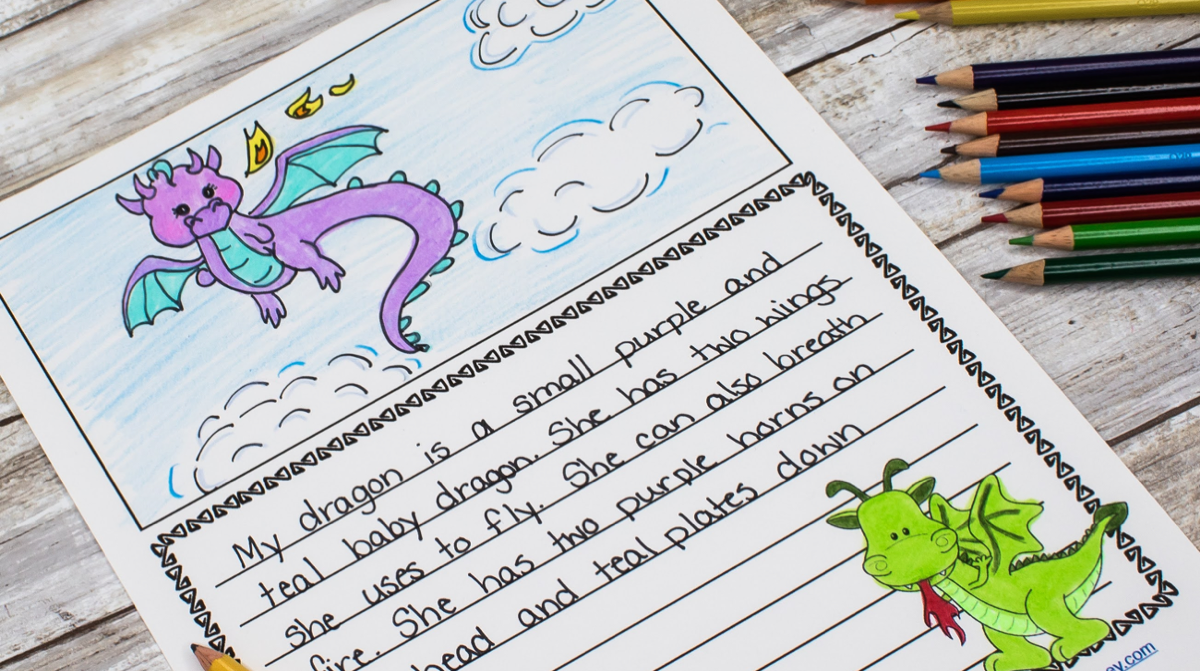 My dragon is a small purple and
teal baby dragon. She has two wiings
she uses to fly. She can also breath
fire. She has two purple horns on
head and teal plates down